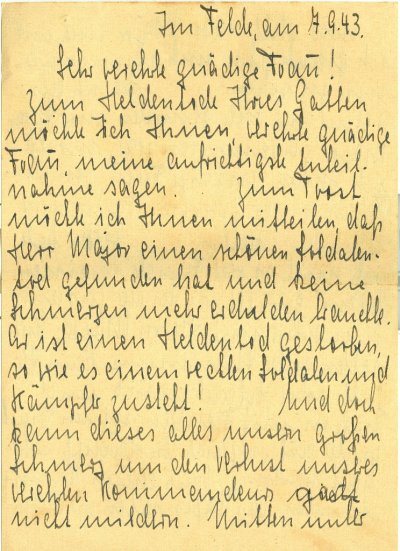 Im Felde, am 7.9.43.
Sehr verehrte gnädige Frau!
Zum Heldentode Ihres Gatten
möchte ich Ihnen, verehrte gnädige
Frau, meine aufrichtigste Anteil-
nahme sagen. Zum Trost
möchte ich Ihnen mitteilen, daß
Herr Major einen schönen Soldaten-
tod gefunden hat und keine
Schmerzen mehr erdulden brauchte.
Er ist einen Heldentod gestorben,
so wie es einem rechten Soldaten und
Kämpfer zusteht! Und doch
kann dieses alles unsern großen
Schmerz um den Verlust unsres
verehrten Kommandeurs
nicht mildern. Mitten unter